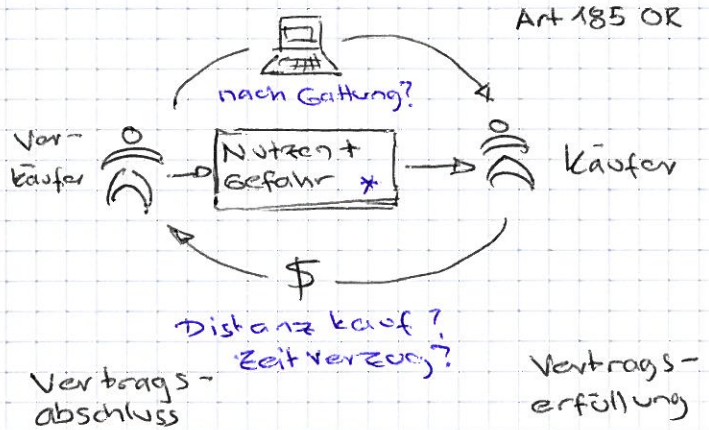 Art 185 OR
nach Gattung?
Ver-
käufer
Nutzen +
Gefahr *
Käufer
$
Distanzkauf?
Zeitverzug?
Vertrags-
abschluss
Vertrags-
erfüllung